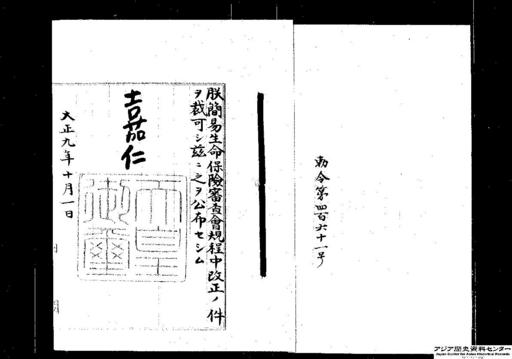 勅令第四百六十一号
朕簡易生命保險審査會規程中改正ノ件
ヲ裁可シ茲ニ之ヲ公布セシム
嘉仁
天皇
御璽
大正九年十月一日
アジア歴史資料センター
Japan Center for Asian Historical Records